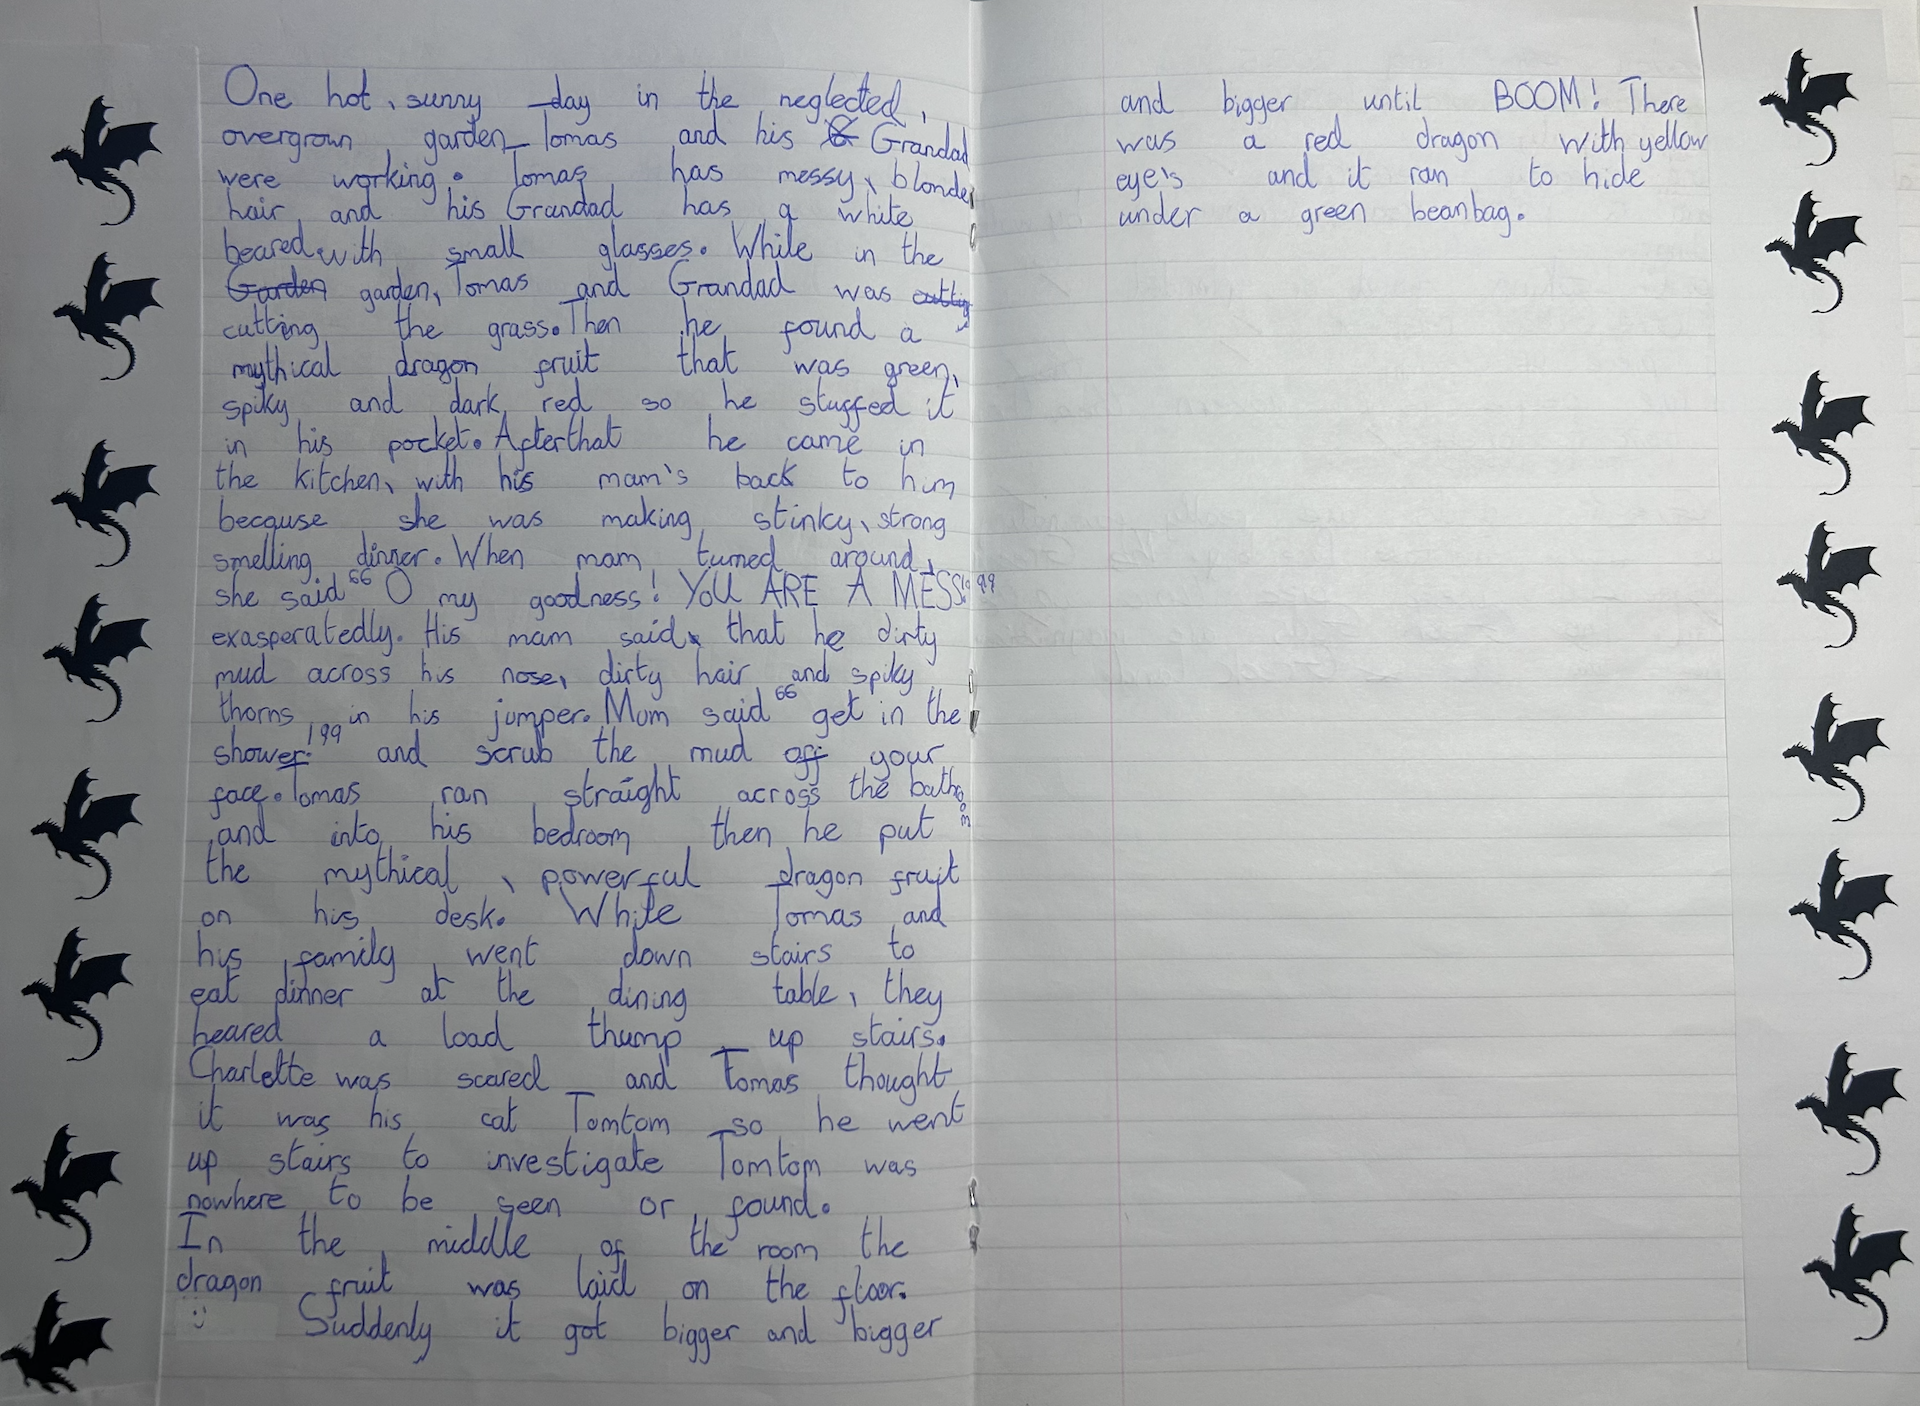 One hot, sunny day in the neglected,
overgrown garden Tomas and his Grandad
were working. Tomas has messy, blonde
hair and his Grandad has a white
beared.with small glasses. While in the
Garden garden, Tomas and Grandad was cutting
cutting the grass. Then he found a
mythical dragon fruit that was green,
spiky and dark red so he stuffed it
in his pocket. After that he came in
the kitchen, with his mam's back to him
because she was making stinky, strong
smelling dinner. When mam turned around,
she said "O my goodness! YOU ARE A MESS!"
exasperatedly. His mam said, that he dirty
mud across his nose, dirty hair and spiky
thorns in his jumper. Mum said "get in the
shower!" and scrub the mud off your
face. Tomas ran straight across the bathroom
and into his bedroom then he put
the mythical, powerful dragon fruit
on his desk. While Tomas and
his family went down stairs to
eat dinner at the dining table, they
heared a load thump up stairs.
Charlotte was scared and Tomas thought
it was his cat Tomtom so he went
up stairs to investigate Tomtom was
nowhere to be seen or found.
In the middle of the room the
dragon fruit was laid on the floor.
:) Suddenly it got bigger and bigger
and bigger until BOOM! There
was a red dragon with yellow
eye's and it ran to hide
under a green beanbag.